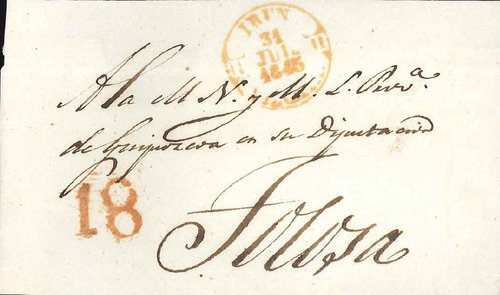 IRUN
31
JUL
A la M. N. y M. L. Prov.ª
de Guipuzcoa en su Diputacion
18
Tolosa